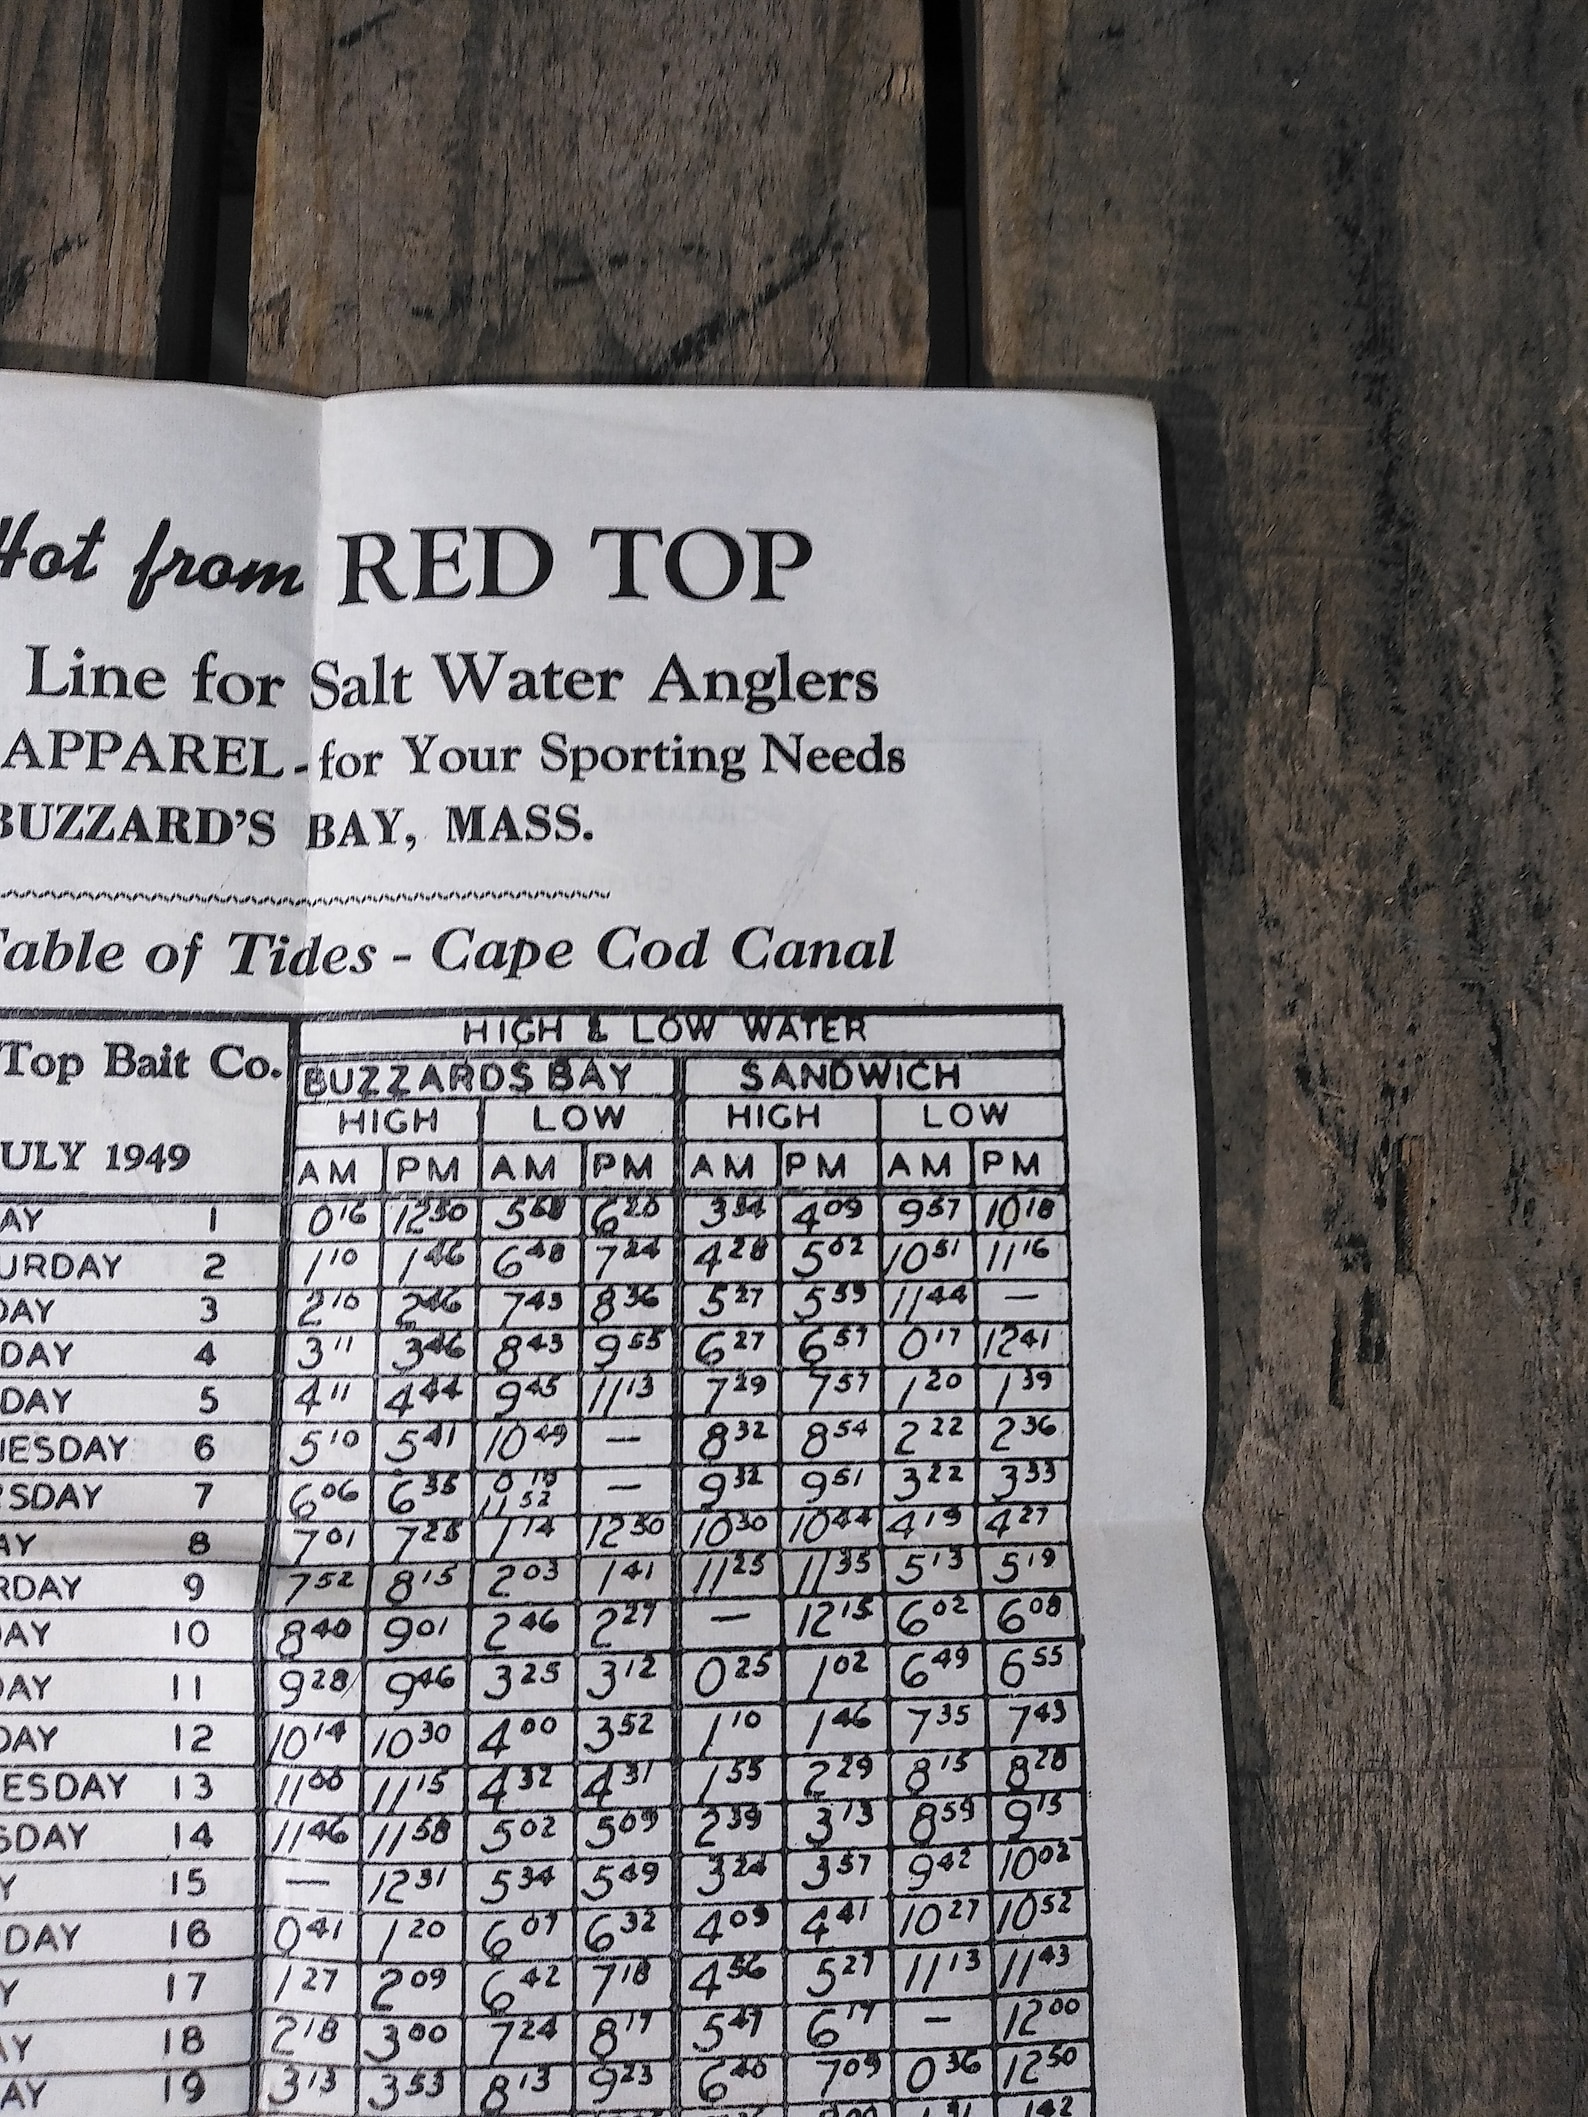 Hot from RED TOP
Line for Salt Water Anglers
APPAREL - for Your Sporting Needs
BUZZARD'S BAY, MASS.
Table of Tides - Cape Cod Canal
HIGH & LOW WATER
Top Bait Co. BUZZARDS BAY SANDWICH
HIGH LOW HIGH LOW
ULY 1949 AM PM AM PM AM PM AM PM
AY 1 0 16 12 50 6 20 3 34 4 09 9 57 10 18
URDAY 2 1 10 1 46 6 48 7 24 4 28 5 02 10 51 11 16
DAY 3 2 10 2 46 7 43 8 36 5 27 5 59 11 44 —
DAY 4 3 11 3 46 8 43 9 55 6 27 6 57 0 17 12 41
DAY 5 4 11 4 44 9 45 11 13 7 29 7 57 1 20 1 39
ESDAY 6 5 10 5 41 10 49 — 8 32 8 54 2 22 2 36
RSDAY 7 6 06 6 35 11 52 — 9 32 9 51 3 22 3 33
AY 8 7 01 7 25 1 14 12 50 10 30 10 44 4 19 4 27
RDAY 9 7 52 8 15 2 03 1 41 11 25 11 35 5 13 5 19
AY 10 8 40 9 01 2 46 2 27 — 12 15 6 02 6 08
AY 11 9 28 9 46 3 25 3 12 0 25 1 02 6 49 6 55
DAY 12 10 14 10 30 4 00 3 52 1 10 1 46 7 35 7 43
ESDAY 13 11 00 11 15 4 32 4 31 1 55 2 29 8 15 8 28
SDAY 14 11 46 11 58 5 02 5 09 2 39 3 13 8 59 9 15
Y 15 — 12 31 5 34 5 49 3 24 3 57 9 42 10 02
DAY 16 0 41 1 20 6 07 6 32 4 09 4 41 10 27 10 52
Y 17 1 27 2 09 6 42 7 18 4 56 5 27 11 13 11 43
AY 18 2 18 3 00 7 24 8 17 5 47 6 17 — 12 00
AY 19 3 13 3 53 8 13 9 23 6 40 7 09 0 36 12 50
1 42